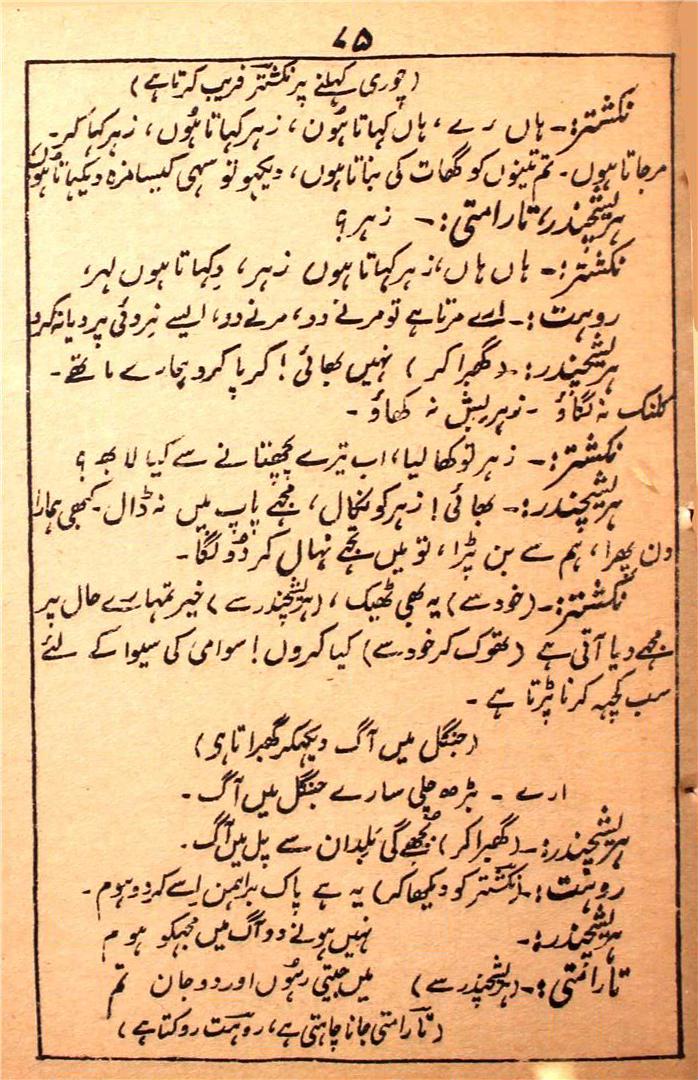 ۷۵
(چوری کہلنے پر نکشتر فریب کرتا ہے)
نکشتر:- ہاں رے، ہاں کہاتا ہُوں، زہر کہاتا ہُوں، زہر کہا کر۔
مرجاتا ہوں۔ تم تینوں کو گھات کی بناتا ہوں، دیکہو تو سہی کیسا مزہ دیکہاتا ہوں
ہریشچندر، تارامتی:- زہر؟
نکشتر:- ہاں ہاں، زہر کہاتا ہوں زہر، دِکہاتا ہوں لہر،
روہت:- اسے مرتا ہے تو مرنے دو، مرنے دو، ایسے نِروئی پر دیا نہ کرو
ہریشچندر:- (گھبرا کر) نہیں بھائی! کرپا کرو ہمارے ماتھے۔
کلنک نہ لگاؤ۔ نوہریش نہ کھاؤ۔
نکشتر:- زہر تو کھا لیا، اب تیرے پچھتانے سے کیا لابھ؟
ہریشچندر:- بھائی! زہر کو نکال، مجھے پاپ میں نہ ڈال۔ کبھی ہمارا
دن پھرا، ہم سے بن پڑا، تو میں تجھے نہال کر دُونگا۔
نکشتر:- (خود سے) یہ بھی ٹھیک، (ہریشچندر سے) خیر تمہارے حال پر
مجھے دیا آتی ہے (تھوک کر خود سے) کیا کروں! سوامی کی سیوا کے لئے
سب کچہہ کرنا پڑتا ہے۔
(جنگل میں آگ دیکہکر گھبراتا ہی)
ارے۔ بڑھ چلی سارے جنگل میں آگ۔
ہریشچندر:- (گھبرا کر) بُجھے گی بلِدان سے پل میں آگ۔
روہت:- (نکشتر کو دیکھا کر) یہ ہے پاک براہمن اِسے کر دو ہوم۔
ہریشچندر:- نہیں ہونے دو آگ میں مجہکو ہوم
تارامتی:- (ہریشچندر سے) میں جیتی رہُوں اور دو جان تم
(تارامتی جانا چاہتی ہے، روہت روکتا ہے)